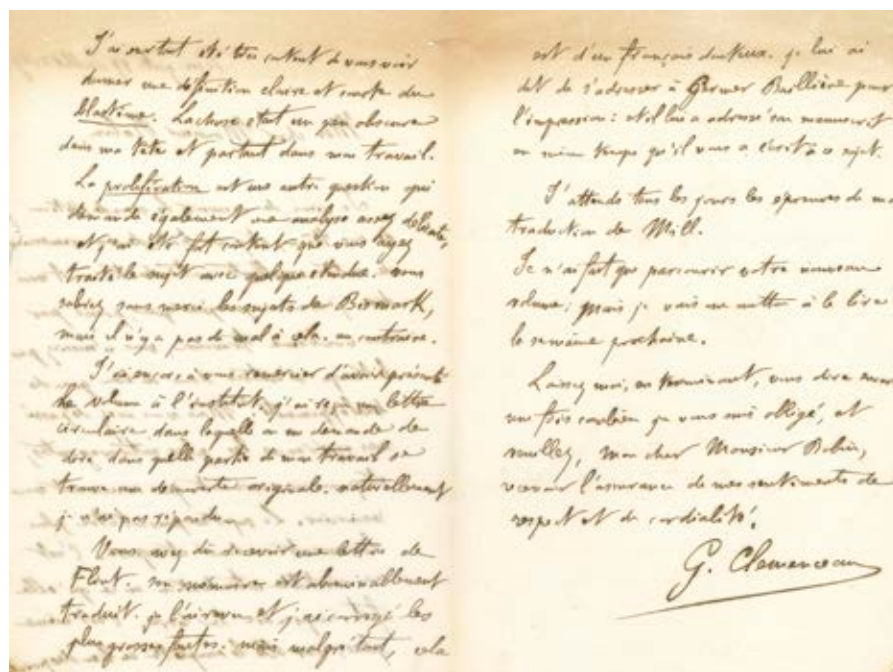 J'ai surtout été très content de vous voir
donner une définition claire et courte du
blastème. La chose était un peu obscure
dans ma tête et partant dans mon travail.
La prolifération est une autre question qui
demande également une analyse assez délicate,
et j'ai été fort content que vous ayez
traité le sujet avec quelque étendue. vous
sans merci les sujets de Bismark,
mais il n'y a pas de mal à cela. au contraire.
J'ai encore à vous remercier d'avoir présenté
le volume à l'institut. j'ai reçu une lettre
circulaire dans laquelle on me demande de
dire dans quelle partie de mon travail se
trouve une découverte originale. naturellement
je n'ai pas répondu.
Vous avez dû recevoir une lettre de
Flint. son mémoire est abominablement
traduit. je l'ai revu et j'ai corrigé les
plus grosses fautes. mais malgré tout, cela
est d'un français douteux. je lui ai
dit de s'adresser à Germer Baillière pour
l'impression : et il lui a adressé son manuscrit
en même temps qu'il vous a écrit à ce sujet.
J'attends tous les jours les épreuves de ma
traduction de Mill.
Je n'ai fait que parcourir votre nouveau
volume ; mais je vais me mettre à le lire
la semaine prochaine.
Laissez moi, en terminant, vous dire encore
une fois combien je vous suis obligé, et
veuillez, mon cher Monsieur Robin,
recevoir l'assurance de mes sentiments de
respect et de cordialité.
G. Clemenceau